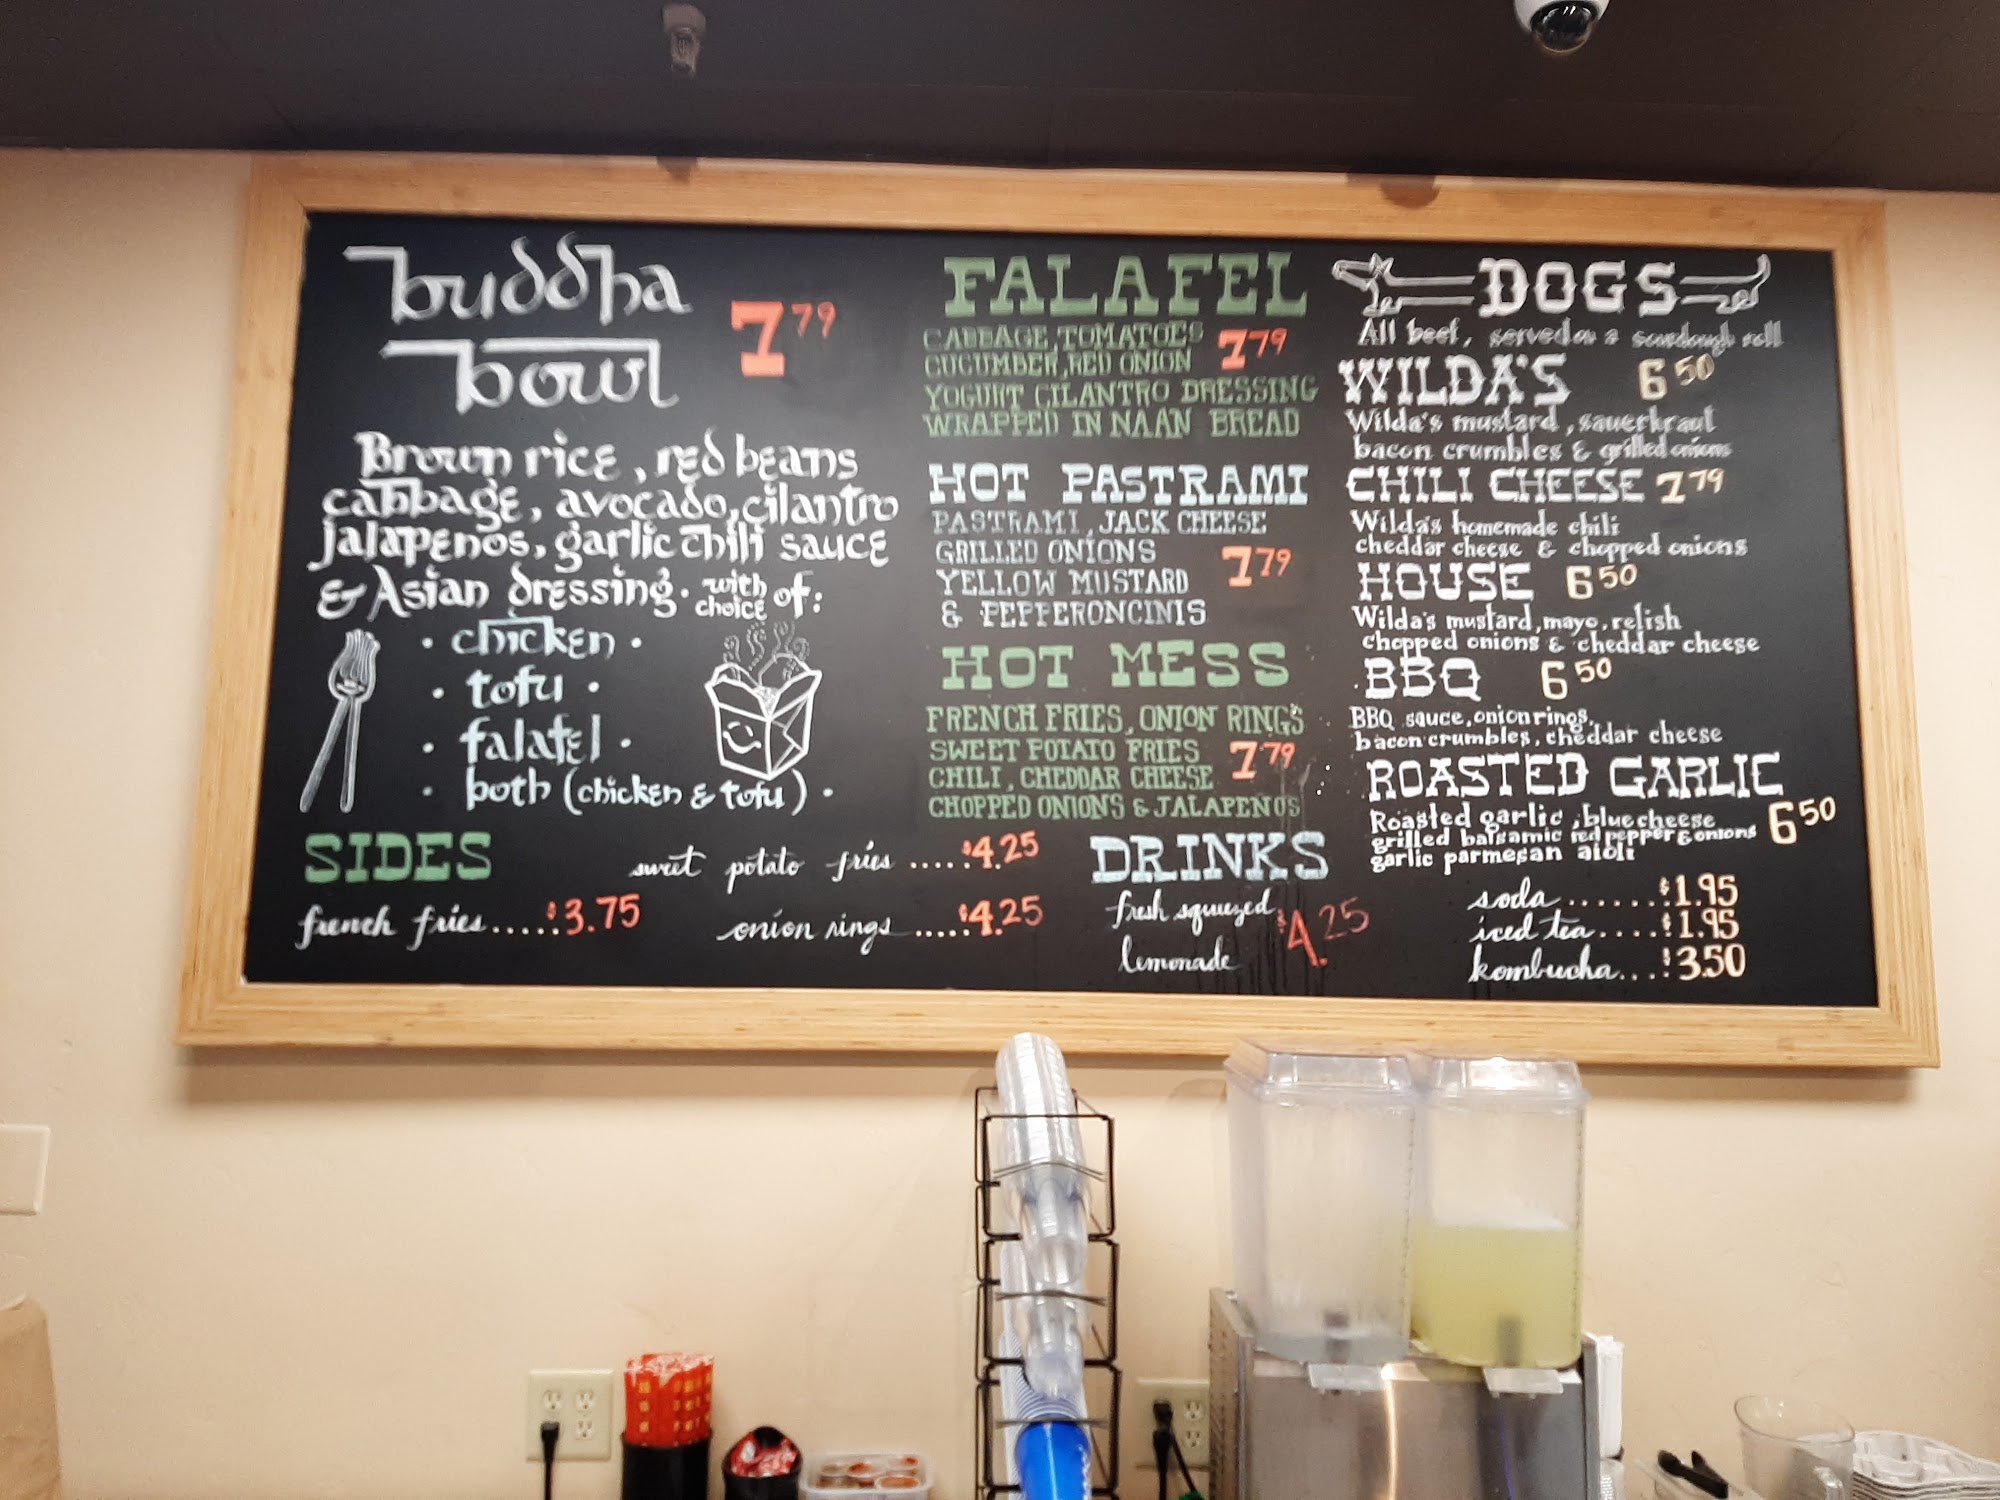 buddha
bowl
7 79
Brown rice, red beans
cabbage, avocado, cilantro
jalapenos, garlic chili sauce
& Asian dressing. with choice of:
• chicken •
• tofu •
• falafel •
• both (chicken & tofu) •
SIDES
french fries.....$3.75
sweet potato fries.....$4.25
onion rings.....$4.25
FALAFEL
CABBAGE, TOMATOES
CUCUMBER, RED ONION 7 79
YOGURT CILANTRO DRESSING
WRAPPED IN NAAN BREAD
HOT PASTRAMI
PASTRAMI, JACK CHEESE
GRILLED ONIONS
YELLOW MUSTARD 7 79
& PEPPERONCINIS
HOT MESS
FRENCH FRIES, ONION RINGS
SWEET POTATO FRIES
CHILI, CHEDDAR CHEESE 7 79
CHOPPED ONIONS & JALAPEÑOS
DOGS
All beef, served on a sourdough roll
WILDA'S 6 50
Wilda's mustard, sauerkraut
bacon crumbles & grilled onions
CHILI CHEESE 7 79
Wilda's homemade chili
cheddar cheese & chopped onions
HOUSE 6 50
Wilda's mustard, mayo, relish
chopped onions & cheddar cheese
BBQ 6 50
BBQ sauce, onion rings,
bacon crumbles, cheddar cheese
ROASTED GARLIC
Roasted garlic, blue cheese
grilled balsamic red pepper & onions 6 50
garlic parmesan aioli
DRINKS
fresh squeezed
lemonade $4.25
soda.......$1.95
iced tea....$1.95
kombucha...$3.50